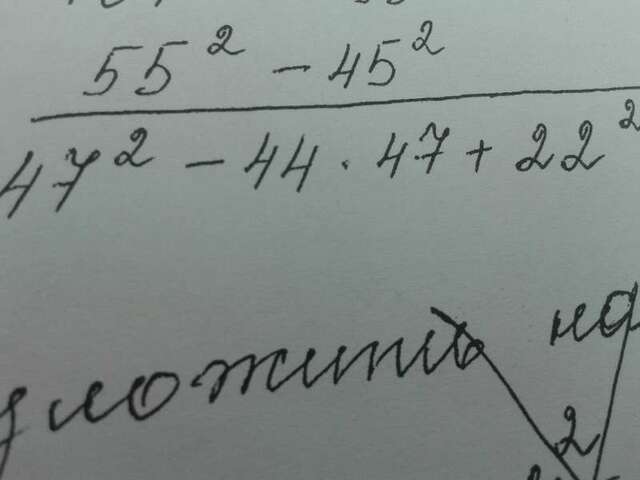 55² - 45²
47² - 44 · 47 + 22²
ложить на
2